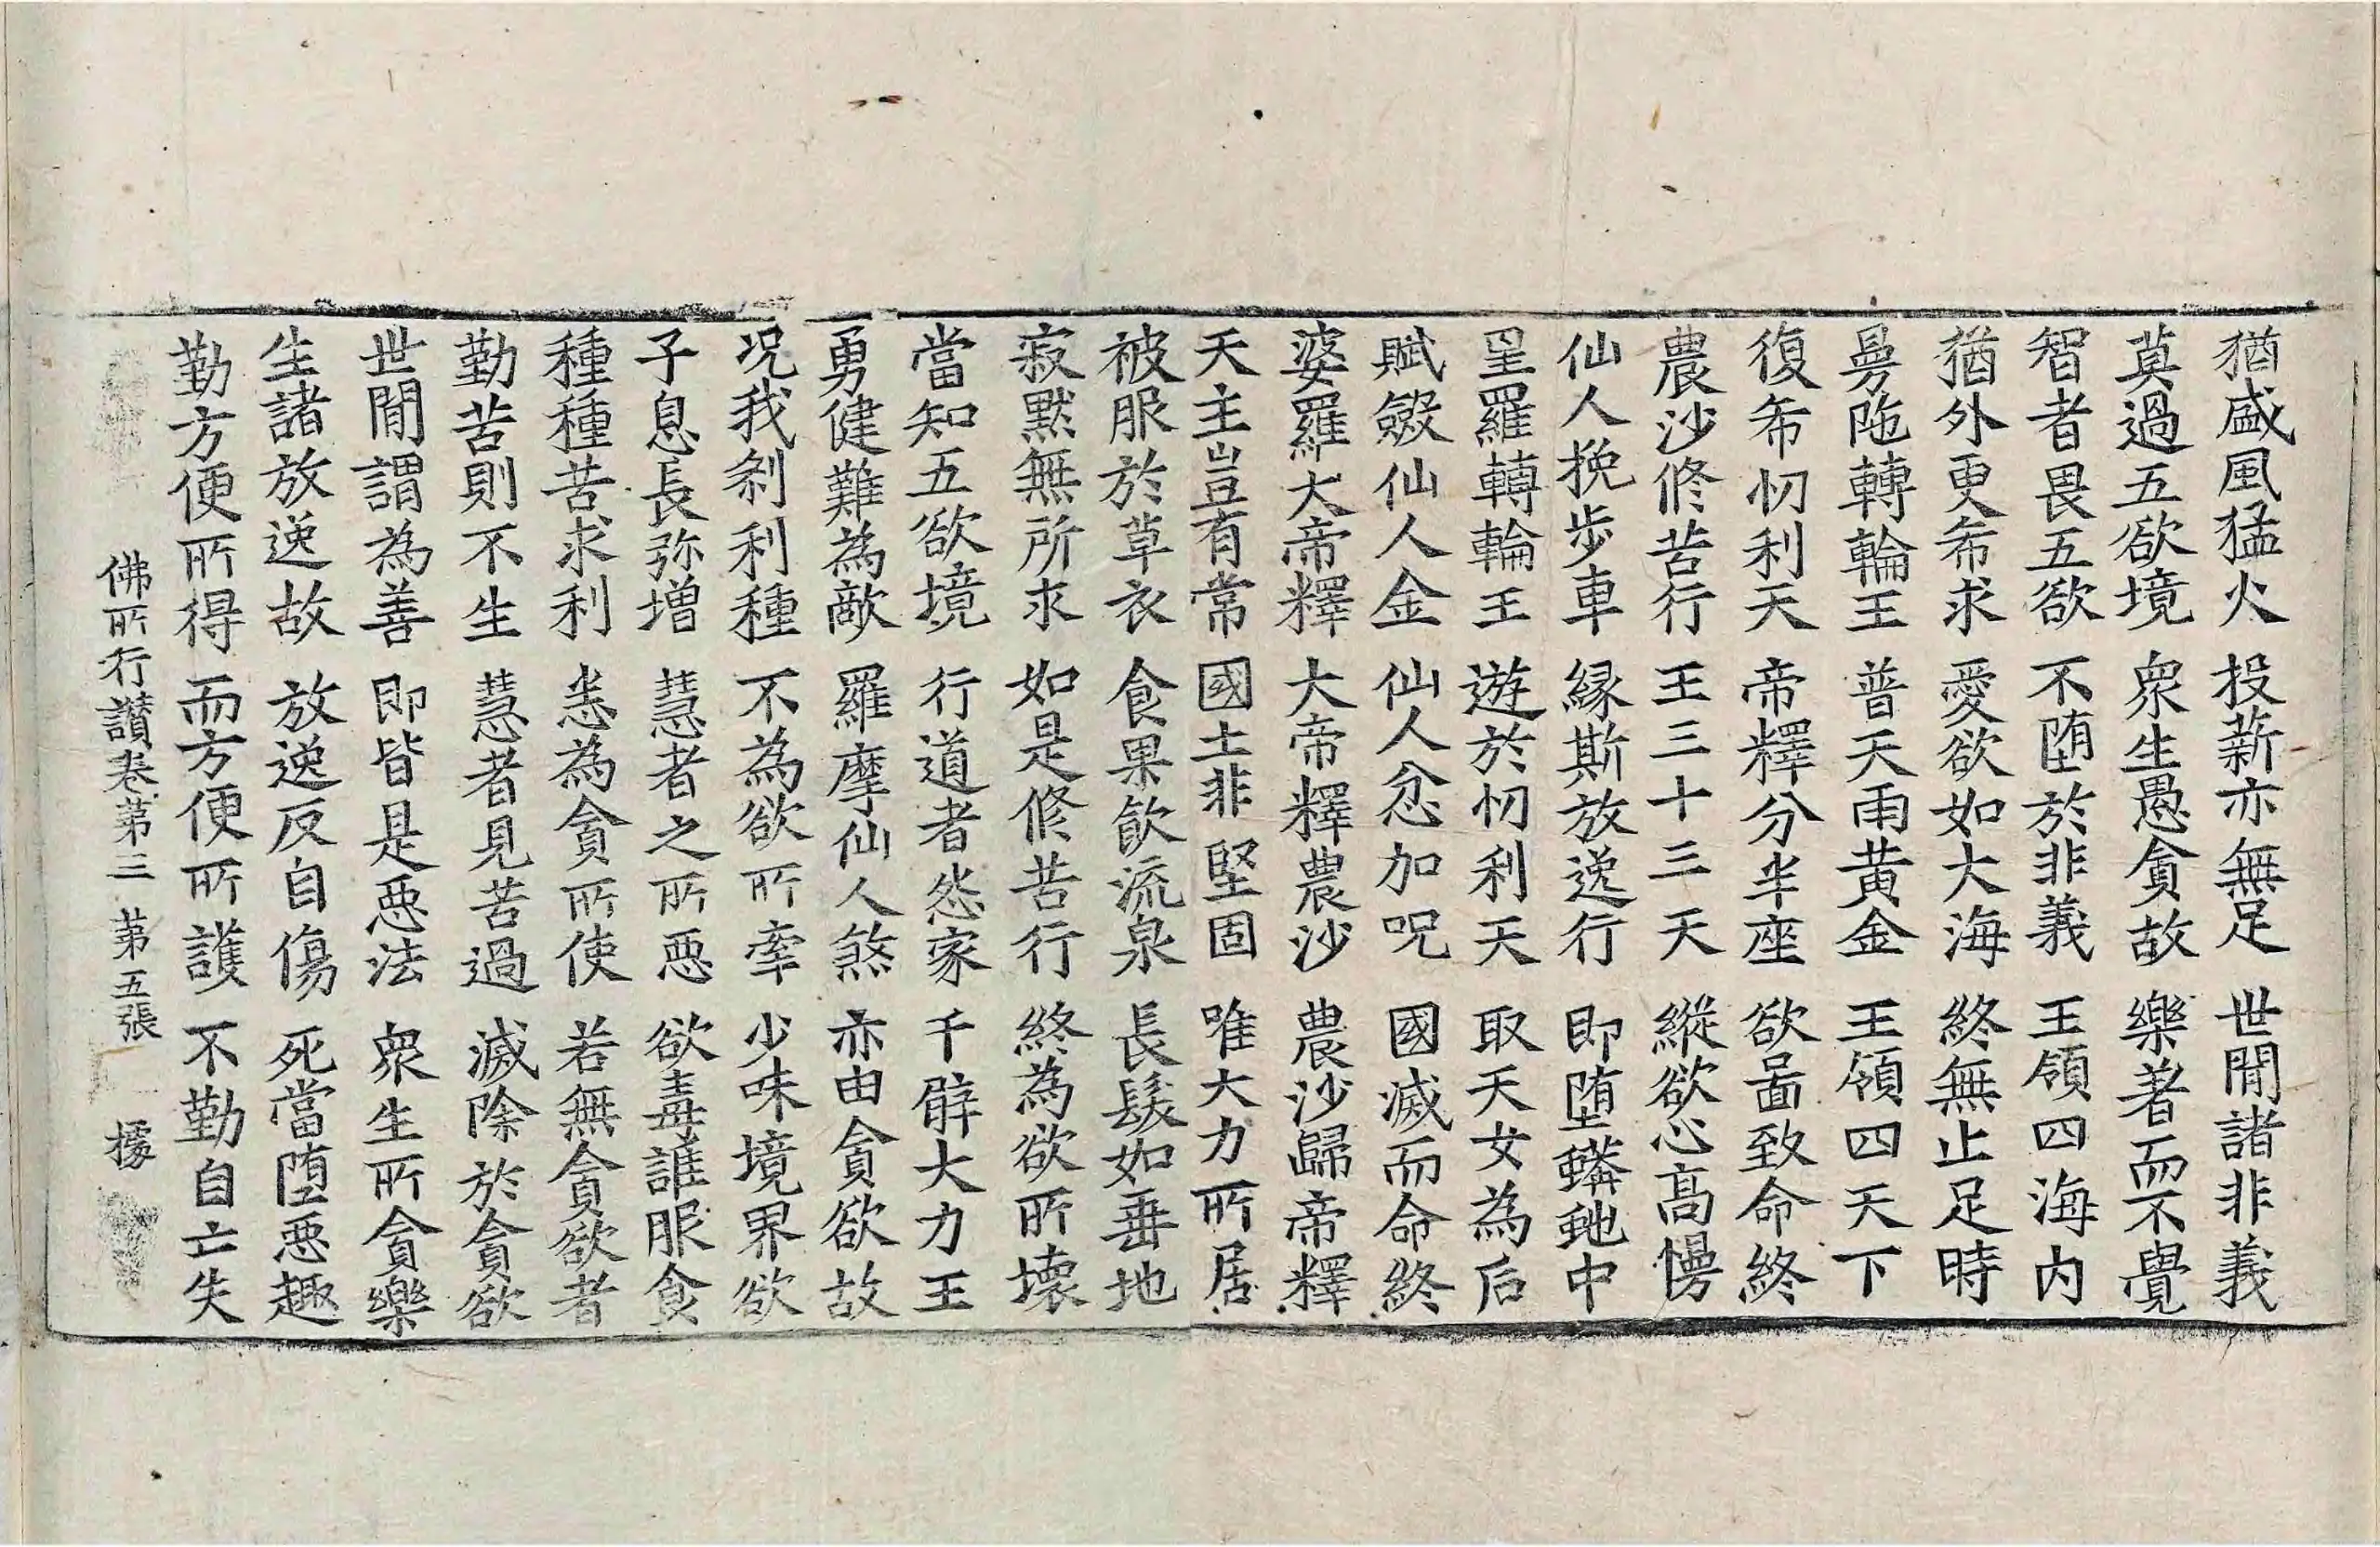 猶盛風猛火 投薪亦無足 世間諸非義
莫過五欲境 衆生愚貪故 樂著而不覺
智者畏五欲 不堕於非義 王領四海内
猶外更希求 愛欲如大海 終無止足時
曼陁轉輪王 普天雨黄金 王領四天下
復希忉利天 帝釋分半座 欲啚致命終
農沙修苦行 王三十三天 縱欲心髙慢
仙人挽步車 縁斯放逸行 即堕蟒虵中
㽵羅轉輪王 遊於忉利天 取天女為后
賦斂仙人金 仙人忿加呪 國滅而命終
婆羅大帝釋 大帝釋農沙 農沙歸帝釋
天主豈有常 國土非堅固 唯大力所居
被服於草衣 食果飲流泉 長髮如垂地
寂黙無所求 如是修苦行 終為欲所壞
當知五欲境 行道者怨家 千臂大力王
勇健難為敵 羅摩仙人煞 亦由貪欲故
况我剎利種 不為欲所牽 少味境界欲
子息長弥增 慧者之所惡 欲毒誰服食
種種苦求利 恙為貪所使 若無貪欲者
勤苦則不生 慧者見苦過 滅除於貪欲
世間謂為善 即皆是惡法 衆生所貪樂
生諸放逸故 放逸反自傷 死當堕惡趣
勤方便所得 而方便所護 不勤自亡失
佛所行讃卷第三 第五張 㩀